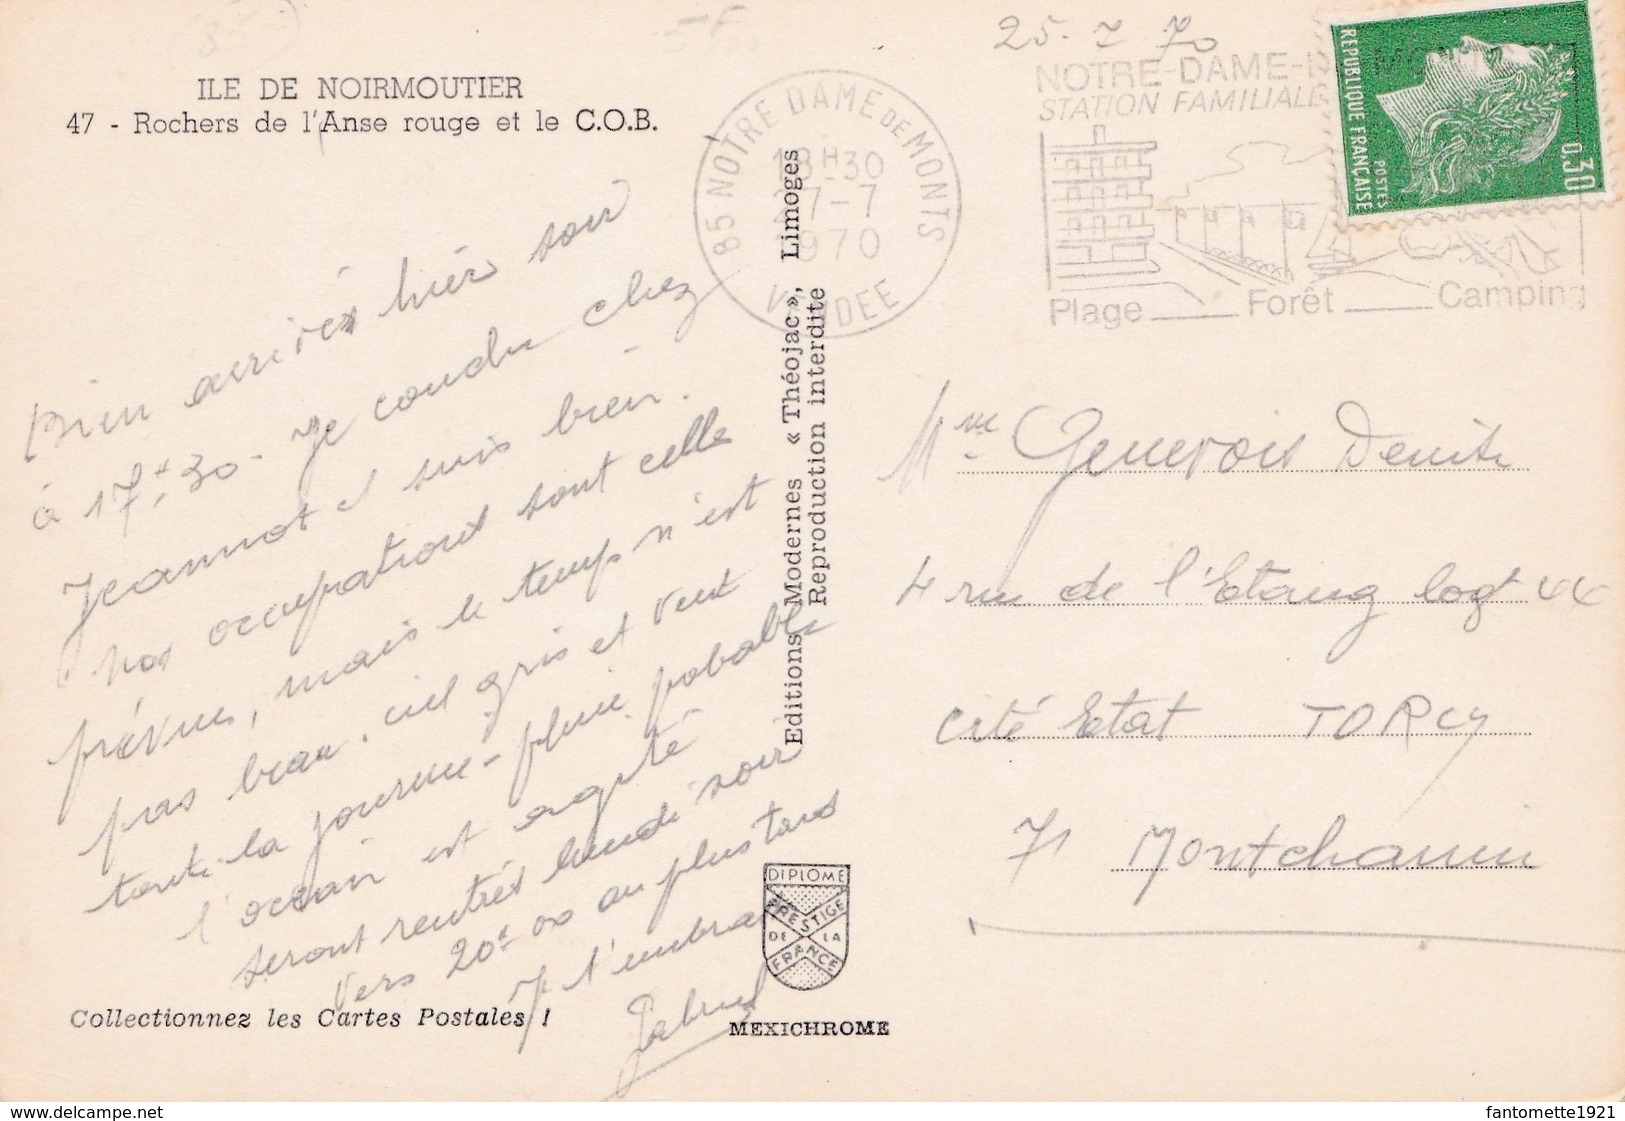 25-7 70
ILE DE NOIRMOUTIER
47 - Rochers de l'Anse rouge et le C.O.B.
85 NOTRE DAME DE MONTS
18H30
27-7
1970
VENDEE
NOTRE-DAME-
STATION FAMILIALE
Plage Forêt Camping
REPUBLIQUE FRANÇAISE
POSTES
0,30
Bien arrivés hier soir
à 17h 30. Je couche chez
Jeannot et suis bien.
nos occupations sont celle
prévues, mais le temps n'est
pas beau. ciel gris et vent
toute la journée - pluie probable
l'océan est agité
seront rentrés lundi soir
vers 20h 00 au plus tard
Je t'embrasse
Gabriel
Mme Genevois Denise
4 rue de l'Etang logt 44
Cité Etat TORCY
71 Montchanin
Editions Modernes « Théojac », Limoges
Reproduction interdite
DIPLOME
PRESTIGE
DE LA
FRANCE
MEXICHROME
Collectionnez les Cartes Postales !
www.delcampe.net
fantomette1921